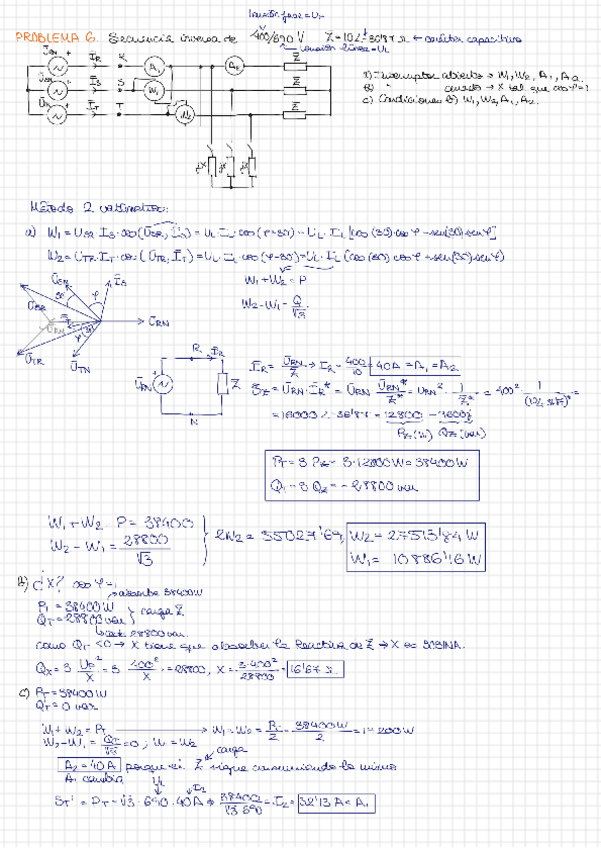 tensión fase = UF
PROBLEMA 6. Secuencia inversa de 400/690 V Z = 10∠-36'87 Ω ← carácter capacitivo
tensión línea = UL
ŪRN ĪR R A1 A2 Z̄
ĪS S W1 Z̄
ĪT T W2 Z̄
jX jX jX
a) Interruptor abierto → W1, W2, A1, A2
b) " cerrado → X tal que cos φ = 1
c) Condiciones b) W1, W2, A1, A2.
Método 2 vatímetros:
a) W1 = USR · IS · cos(ŪSR, ĪS) = UL · IL · cos(φ+30) = UL · IL [cos(30) cos φ - sen(30) sen φ]
W2 = UTR · IT · cos(ŪTR, ĪT) = UL · IL · cos(φ-30) = UL · IL (cos(30) cos φ + sen(30) sen φ)
W1 + W2 = P
W2 - W1 = Q/√3
ŪSN ĪS ŪSR ŪRN ŪTR ŪTN
R ĪR ŪRN Z̄ N
ĪR = ŪRN/Z̄ → IR = 400/10 = 40A = A1 = A2
S̄Z = ŪRN · ĪR* = ŪRN · ŪRN*/Z̄* = URN² · 1/Z̄* = 400² · 1
= 16000∠-36'87 = 12800 - 9600j
PZ (W) QZ (var)
PT = 3 PZ = 3·12800W = 38400W
QT = 3 QZ = -28800 var
W1 + W2 P = 38400
W2 - W1 = 28800/√3
2W2 = 55027'69, W2 = 27513'84 W
W1 = 10886'16 W
b) ¿X? cos φ = 1
absorbe 38400W
PT = 38400W
QT = -28800 var
carga Z̄
28800 var
como QT < 0 → X tiene que absorber la reactiva de Z̄ → X es BOBINA.
QX = 3 UF²/X = 3 · 400²/X = 28800, X = 3·400²/28800 = 16'67 Ω.
c) PT = 38400W
QT = 0 var
W1 + W2 = PT → W1 = W2 = PT/2 = 38400W/2 = 19200W
W2 - W1 = QT/√3 = 0; W1 = W2
carga
A2 = 40A porque Z̄ sigue consumiendo lo mismo
A1 cambia
ST' = PT = √3 · 690 · 38400/√3·690 = IL = 32'13 A = A1